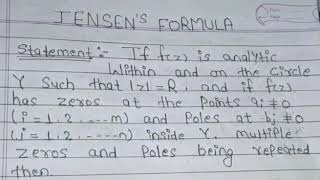 JENSEN'S FORMULA
Statement:- If f(z) is analytic
within and on the circle
γ Such that |z|=R, and if f(z)
has zeros at the Points ai≠0
(i=1,2....m) and Poles at bj≠0
(i=1,2.....n) inside γ, multiple
zeros and Poles being repeated
then.